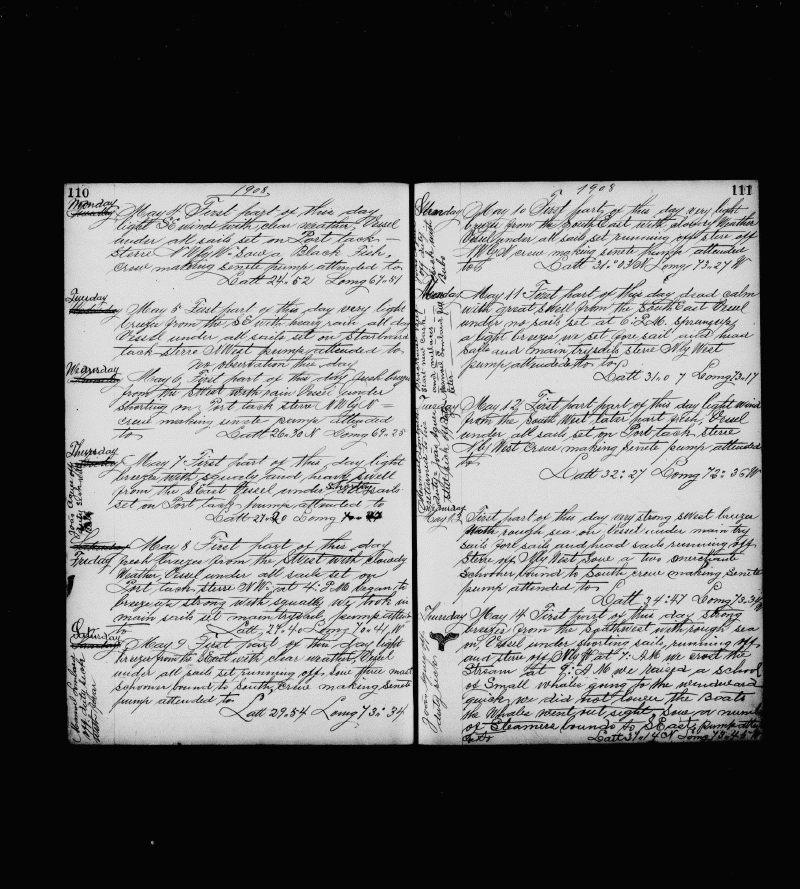 110
1908,
Monday
May 4 First part of this day
light SE wind with clear weather, Vessel
under all sails set on Port tack —
Sterre NWyW. Saw a Black Fish,
Crew making senete pump attended to
Latt 24.52 Long 67.51
Tuesday
May 5 Fast part of this day very light
breeze from the SE with heavy rain all day
Vessel under all sails set on Starboard
tack sterre SWest pump attended to.
No observation this day
Wednesday
May 6, First part of this day fresh breeze
from the SWest with rain Vessel under
Shorting on Port tack sterre NWyN =
crew making senete pump attended
to Latt 26=30 N Long 69.25
Thursday
May 7 First part of this day light
breeze with squarly and heavy swell
from the SEast Vessel under Shorting sails
set on Port tack pump attended to
Latt 27.20 Long 70
Friday
May 8 First part of this day
fresh breeze from the SWest with Cloudy
Weather, Vessel under all sails set on
Port tack, sterre NW. at 4. P.M began to
breeze up strong with squally we took in
main sails set main trysail pump atten
to Latt 27.40 Long 70.41 W
Saturday
May 9 First part of this day light
breeze from the SEast with clear weather, Vessel
under all sails set running off. Saw three mast
schooner bound to South, Crew making Senete
pump attended to.
Latt 29.54 Long 73.34
111
1908
Sunday May 10 First part of this day very light
breeze from the South East with cloudy Weather
Vessel under all sails set running off sterre off
NW crew making senete pump attended
to Latt 31.03 N Long 73.27 W
Monday May 11 First part of this day dead calm
with great swell from the South East Vessel
under no sails set at 6 P.M. Sprung up
a light breeze we set fore sail and head
sails and main trysails sterre NyWest
pump attended to to
Latt 31.0 7 Long 73.17
Tuesday May 12 First part part of this day light wind
from the South West later part fresh, Vessel
under all sails set on Port tack sterre
NyWest Crew making senete pump attended
to
Latt 32.27 Long 73.36 W
Wednesday
May 13 First part of this day very strong SWest breeze
with rough sea on Vessel under main try
sails fore sails and head sails running off
sterre off NyWest Saw a two merchant
schooner bound to South, crew making Senete
pump attended to
Latt 34.47 Long 73.34 W
Thursday May 14 First part of this day strong
breeze from the Southwest with rough sea
on, Vessel under shorting sails running off
and sterre off NW at 7. A.M we crost the
Stream at 9. A.M we raised a school
of Small whales going to the windward
quick, we did not lower the Boats
the Whales went out sight Saw a number
of Steamers bound to S East, pump atten
to